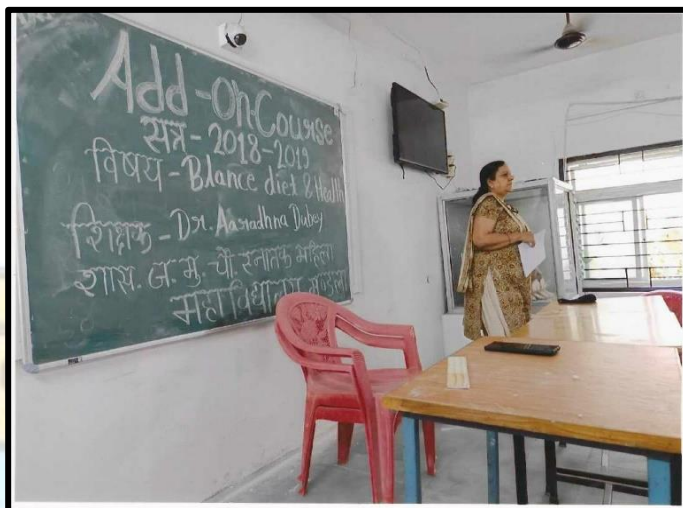 Add-On Course
सत्र - 2018-2019
विषय - Blance diet & Health
शिक्षक - Dr. Aaradhna Dubey
शास. ज. मु. चौ. स्नातक महिला
महाविद्यालय मण्डला